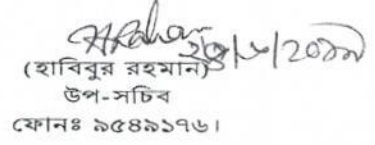 (হাবিবুর রহমান)
উপ-সচিব
ফোনঃ ৯৫৪৯১৭৬।